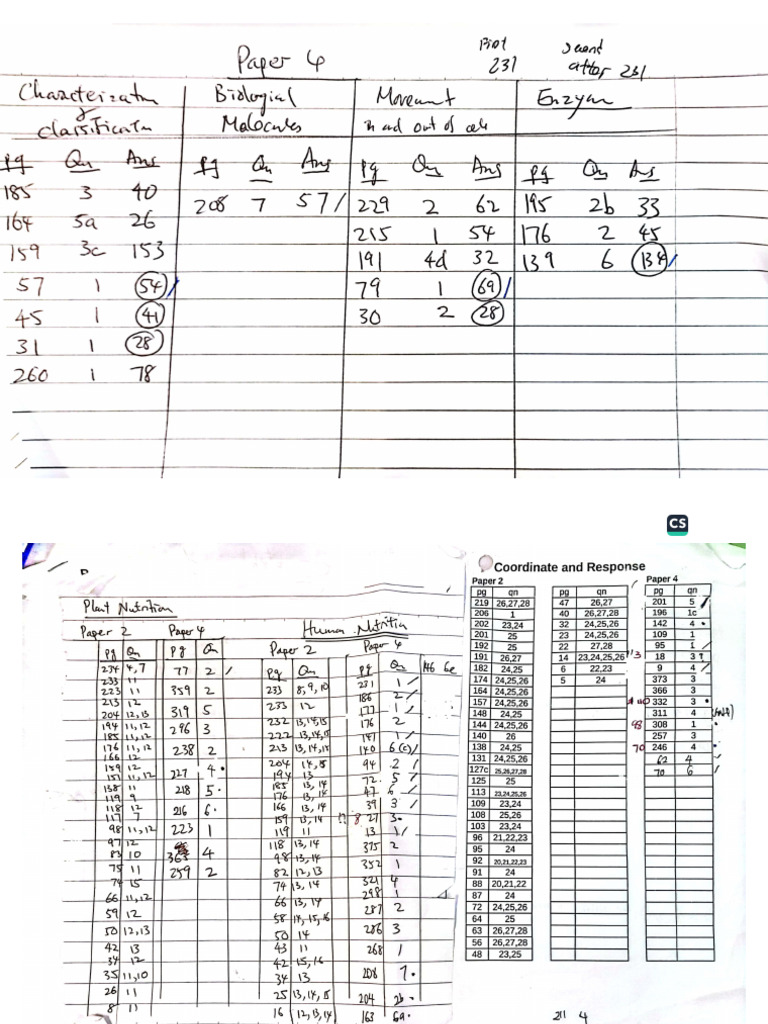 Paper 4
231
after 231
Biological
Molecules
Movement
in and out of cells
Enzyme
classification
pg Qn Ans pg Qn Ans pg Qn Ans pg Qn Ans
185 3 40 208 7 57 / 229 2 62 195 2b 33
164 5a 26 215 1 54 176 2 45
159 3c 153 191 4d 32 139 6 134 /
57 1 54 / 79 1 69 /
45 1 41 30 2 28
31 1 28
260 1 78
CS
Plant Nutrition
Paper 2 Paper 4
pg Qn pg Qn
274 4,7 77 2 /
233 11
223 11 359 2
213 12
204 12,13 319 5
194 11,12 296 3
185 11,12
176 11,12 238 2
166 12
159 12 227 4 •
151 11,12
138 11 218 5 •
119 9
118 12 216 6 •
117 7
98 11,12 223 1
97 12
83 10 363 4
75 11 259 2
74 15
66 11,12
59 12
50 12,13
42 13
34 12
35 11,10
26 11
8 11
Human Nutrition
Paper 2 Paper 4
pg Qn pg Qn
233 8,9,10 231 1 /
186 2 /
233 12 177 1 /
232 13,14,15 176 2
222 13,14,15 141 1 /
213 13,14,15 140 6(c) /
204 14,15 94 2 /
194 13
185 13,14 72 5 /
176 13,14 47 6 /
166 13,14 39 3 /
159 13,14 27 3 •
119 11 13 1 /
118 13,14 375 2
98 13,14 352 1
82 12,13
74 13,14 321 4
298 1
66 13,14 287 2
58 14,15,16
50 14 286 3
43 11 268 1
42 15,16
34 13 208 7 •
25 13,14,15 204 2b •
16 12,13,14 163 6a •
Coordinate and Response
Paper 2
pg qn
219 26,27,28
206 1
202 23,24
201 25
192 25
191 26,27
182 24,25
174 24,25,26
164 24,25,26
157 24,25,26
148 24,25
144 24,25,26
140 26
138 24,25
131 24,25,26
127c 25,26,27,28
125 25
113 23,24,25,26
109 23,24
108 25,26
103 23,24
96 21,22,23
95 24
92 20,21,22,23
91 24
88 20,21,22
87 24
72 24,25,26
64 25
63 26,27,28
56 26,27,28
48 23,25
pg qn
47 26,27
40 26,27,28
32 24,25,26
23 24,25,26
22 27,28
14 23,24,25,26
6 22,23
5 24
Paper 4
pg qn
201 5
196 1c
142 4 •
109 1
95 1 /
18 3
9 4 /
373 3
366 3
332 3 •
311 4
308 1 •
257 3
246 4 •
62 4 /
70 6 /
211 4